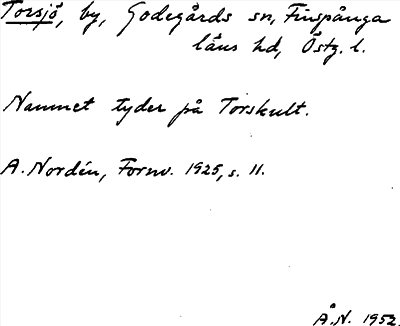 Torsjö, by, Godegårds sn, Finspånga
läns hd, Östg. l.
Namnet tyder på Torskult.
A. Nordén, Fornv. 1925, s. 11.
Å.N. 1952.